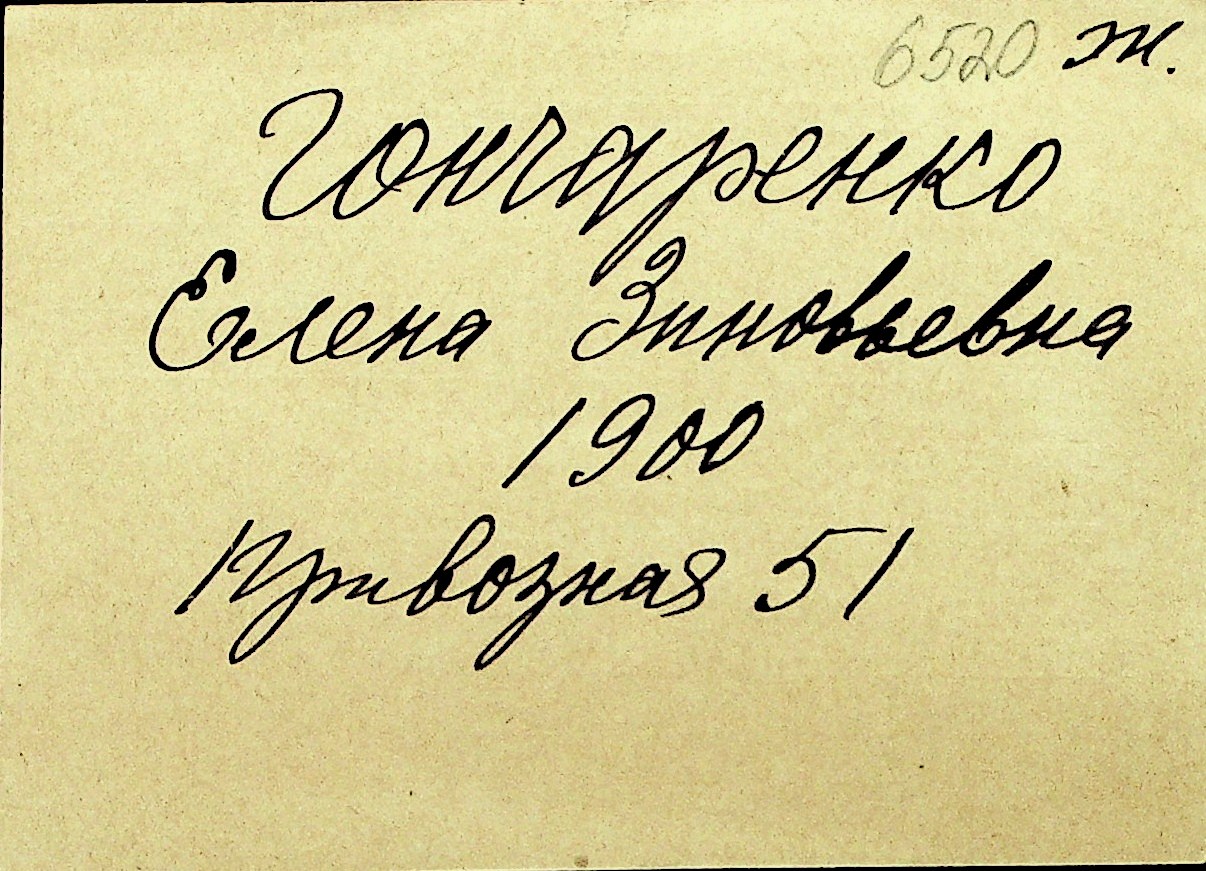 6520 ж.
Гончаренко
Елена Зиновьевна
1900
Привозная 51